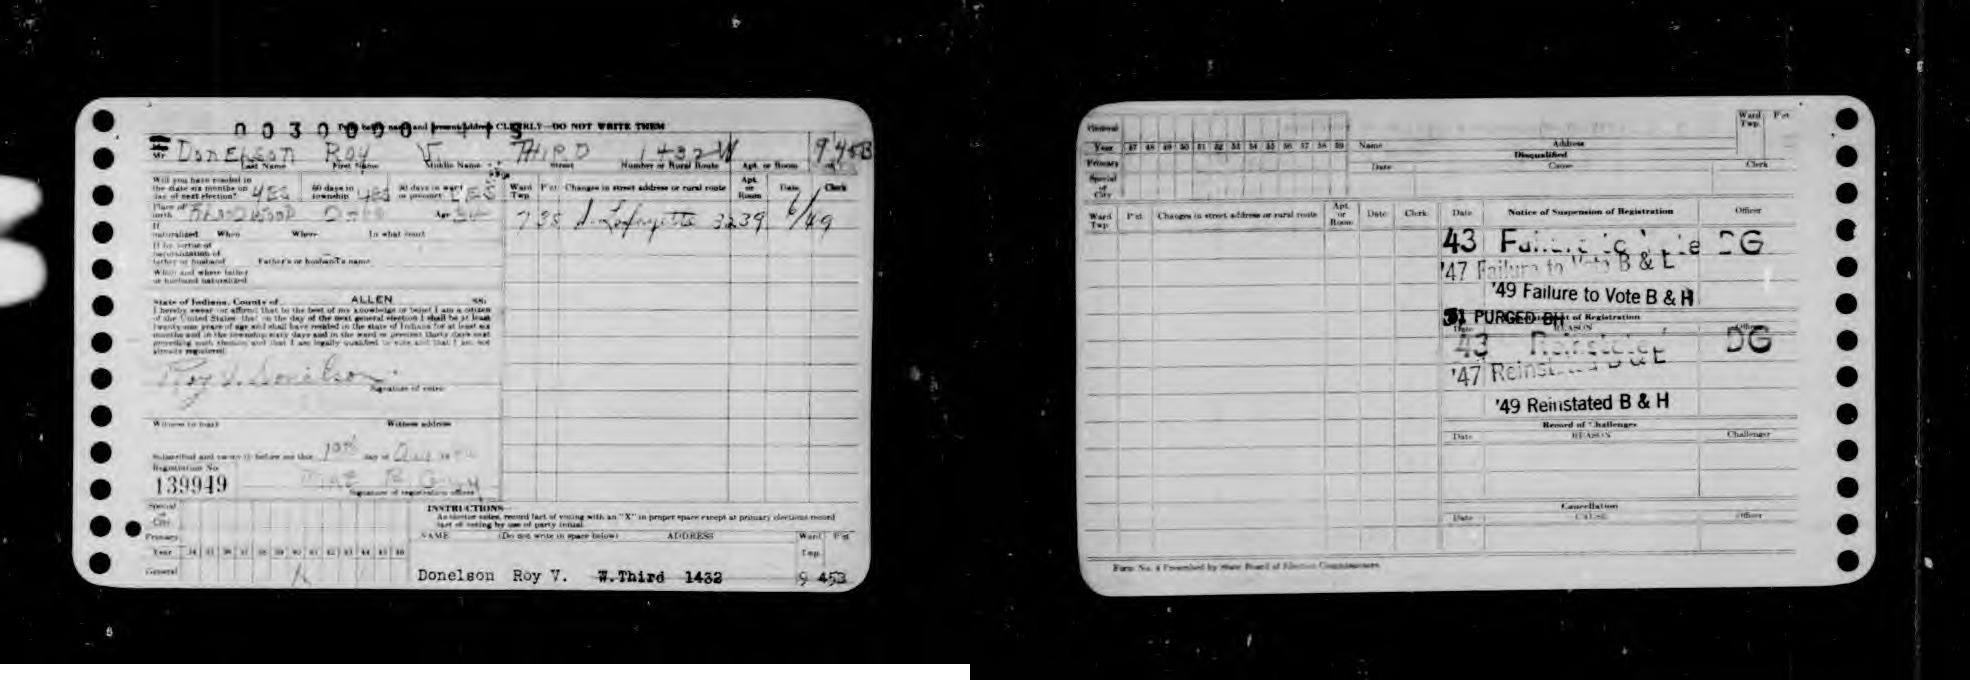 Print below name and present address CLEARLY—DO NOT WRITE THEM
Mr. Donelson Roy V THIRD 1432 W 9 453
Last Name First Name Middle Name Street Number or Rural Route Apt. or Room
Will you have resided in the state six months on day of next election? YES 60 days in township YES 30 days in ward or precinct YES
Ward Twp. P'ct Changes in street address or rural route Apt. or Room Date Clerk
Place of birth Age
7 38 S. Lafayette 3239 6/49
If naturalized When Where In what court
If by virtue of naturalization of father or husband Father's or husband's name
When and where father or husband naturalized
State of Indiana, County of ALLEN ss:
I hereby swear or affirm that to the best of my knowledge or belief I am a citizen
of the United States that on the day of the next general election I shall be at least
twenty-one years of age and shall have resided in the state of Indiana for at least six
months and in the township sixty days and in the ward or precinct thirty days next
preceding such election and that I am legally qualified to vote and that I am not
already registered.
Roy V. Donelson
Signature of voter
Witness to mark Witness address
Subscribed and sworn to before me this 10th day of
Registration No.
139949
Signature of registration officer
INSTRUCTIONS—
As elector votes, record fact of voting with an "X" in proper space except at primary elections record
fact of voting by use of party initial.
Special or City
Primary
NAME (Do not write in space below) ADDRESS Ward Twp. P'ct
Year 34 35 36 37 38 39 40 41 42 43 44 45 46
General
Donelson Roy V. W.Third 1432 9 453
General
Year 47 48 49 50 51 52 53 54 55 56 57 58 59 Name Address Ward Twp. P'ct
Primary Disqualified
Special or City Date Cause Clerk
Ward Twp. P'ct Changes in street address or rural route Apt. or Room Date Clerk Date Notice of Suspension of Registration Officer
43 Failure to Vote DG
'47 Failure to Vote B & E
'49 Failure to Vote B & H
51 PURGED BH
of Registration
Date REASON Officer
43 Reinstated DG
'47 Reinstated B & E
'49 Reinstated B & H
Record of Challenges
Date REASON Challenger
Cancellation
Date CAUSE Officer
Form No. 4 Prescribed by State Board of Election Commissioners